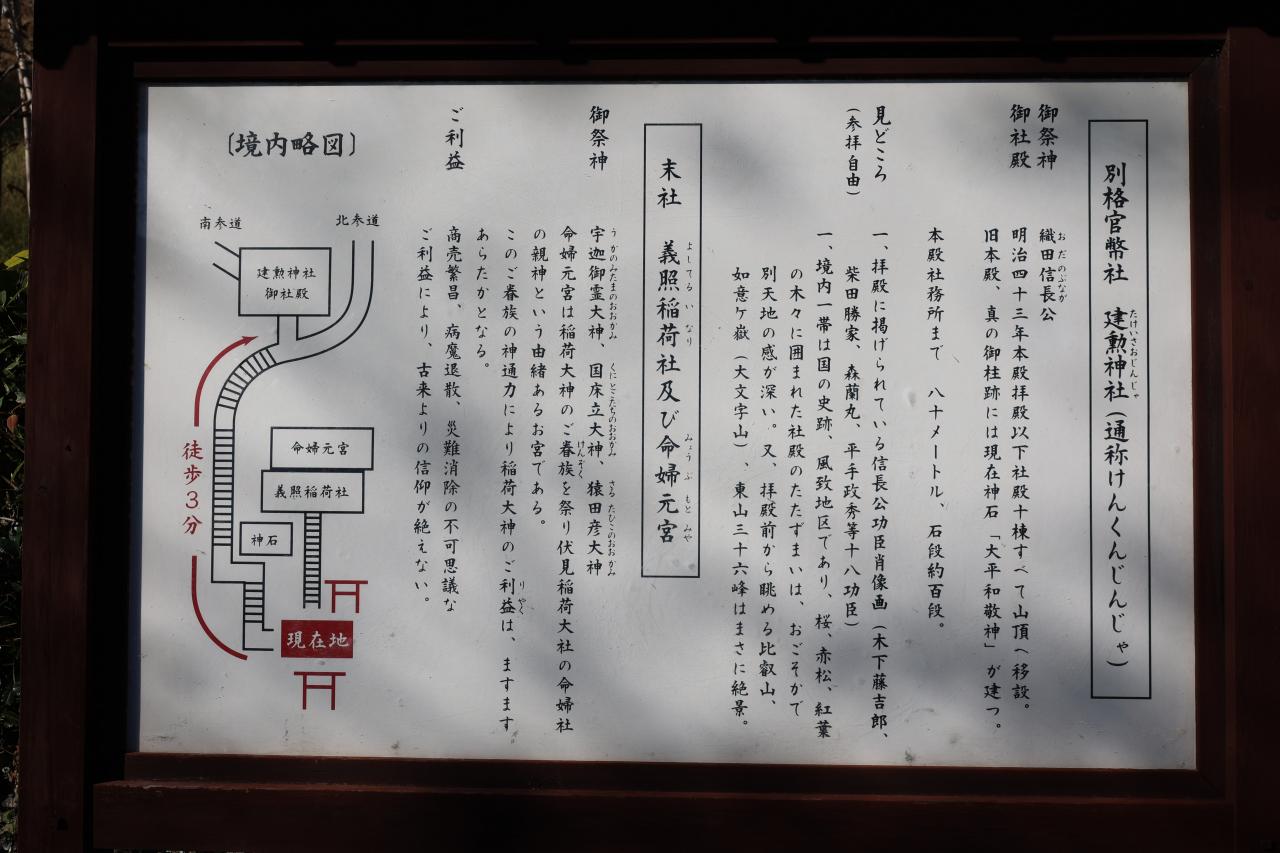 別格官幣社 建勲神社（通称けんくんじんじゃ）
たけいさおじんじゃ
御祭神 織田信長公
おだのぶなが
御社殿 明治四十三年本殿拝殿以下社殿十棟すべて山頂へ移設。
旧本殿、真の御柱跡には現在神石「大平和敬神」が建つ。
本殿社務所まで 八十メートル、石段約百段。
見どころ 一、拝殿に掲げられている信長公功臣肖像画（木下藤吉郎、
（参拝自由） 柴田勝家、森蘭丸、平手政秀等十八功臣）
一、境内一帯は国の史跡、風致地区であり、桜、赤松、紅葉
の木々に囲まれた社殿のたたずまいは、おごそかで
別天地の感が深い。又、拝殿前から眺める比叡山、
如意ケ嶽（大文字山）、東山三十六峰はまさに絶景。
末社 義照稲荷社及び命婦元宮
よしてるいなり みょうぶもとみや
御祭神 宇迦御霊大神、国床立大神、猿田彦大神
うかのみたまのおおかみ くにとこたちのおおかみ さるたひこのおおかみ
命婦元宮は稲荷大神のご眷族を祭り伏見稲荷大社の命婦社
けんぞく
の親神という由緒あるお宮である。
このご眷族の神通力により稲荷大神のご利益は、ますます
りやく
あらたかとなる。
ご利益 商売繁昌、病魔退散、災難消除の不可思議な
ご利益により、古来よりの信仰が絶えない。
〔境内略図〕
北参道
南参道
建勲神社
御社殿
命婦元宮
義照稲荷社
神石
徒歩3分
現在地